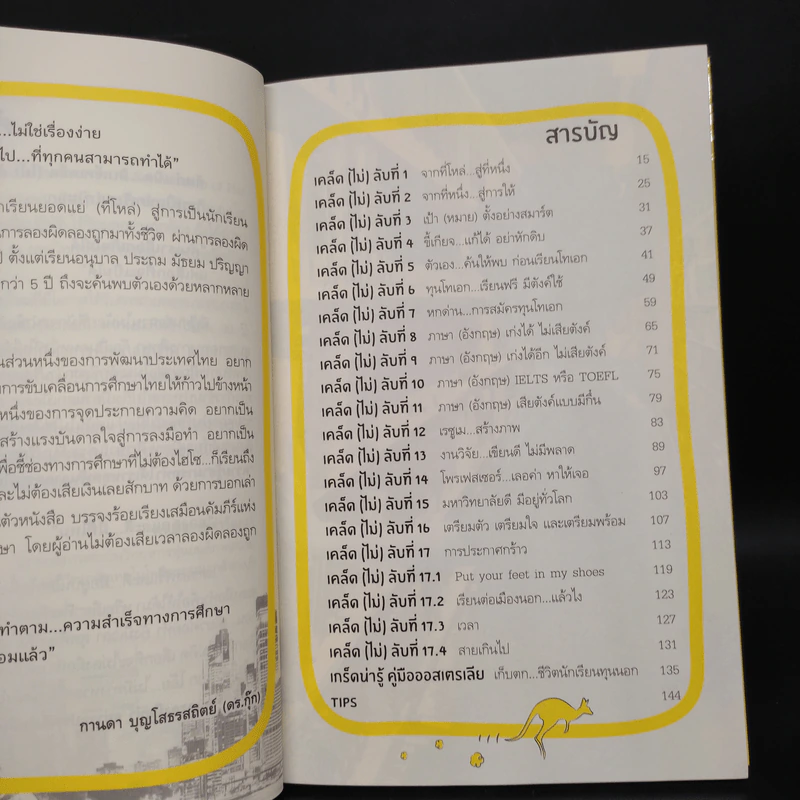 ...ไม่ใช่เรื่องง่าย
ไป...ที่ทุกคนสามารถทำได้”
เรียนยอดแย่ (ที่โหล่) สู่การเป็นนักเรียน
การลองผิดลองถูกมาทั้งชีวิต ผ่านการลองผิด
ปี ตั้งแต่เรียนอนุบาล ประถม มัธยม ปริญญา
กว่า 5 ปี ถึงจะค้นพบตัวเองด้วยหลากหลาย
ส่วนหนึ่งของการพัฒนาประเทศไทย อยาก
การขับเคลื่อนการศึกษาไทยให้ก้าวไปข้างหน้า
หนึ่งของการจุดประกายความคิด อยากเป็น
สร้างแรงบันดาลใจสู่การลงมือทำ อยากเป็น
เพื่อชี้ช่องทางการศึกษาที่ไม่ต้องไฮโซ...ก็เรียนถึง
และไม่ต้องเสียเงินเลยสักบาท ด้วยการบอกเล่า
ตัวหนังสือ บรรจงร้อยเรียงเสมือนคัมภีร์แห่ง
ษา โดยผู้อ่านไม่ต้องเสียเวลาลองผิดลองถูก
ทำตาม...ความสำเร็จทางการศึกษา
อมแล้ว”
กานดา บุญโสธรสถิตย์ (ดร.กุ๊ก)
สารบัญ
เคล็ด (ไม่) ลับที่ 1 จากที่โหล่...สู่ที่หนึ่ง 15
เคล็ด (ไม่) ลับที่ 2 จากที่หนึ่ง...สู่การให้ 25
เคล็ด (ไม่) ลับที่ 3 เป้า (หมาย) ตั้งอย่างสมาร์ต 31
เคล็ด (ไม่) ลับที่ 4 ขี้เกียจ...แก้ได้ อย่าหักดิบ 37
เคล็ด (ไม่) ลับที่ 5 ตัวเอง...ค้นให้พบ ก่อนเรียนโทเอก 41
เคล็ด (ไม่) ลับที่ 6 ทุนโทเอก...เรียนฟรี มีตังค์ใช้ 49
เคล็ด (ไม่) ลับที่ 7 หกด่าน...การสมัครทุนโทเอก 59
เคล็ด (ไม่) ลับที่ 8 ภาษา (อังกฤษ) เก่งได้ ไม่เสียตังค์ 65
เคล็ด (ไม่) ลับที่ 9 ภาษา (อังกฤษ) เก่งได้อีก ไม่เสียตังค์ 71
เคล็ด (ไม่) ลับที่ 10 ภาษา (อังกฤษ) IELTS หรือ TOEFL 75
เคล็ด (ไม่) ลับที่ 11 ภาษา (อังกฤษ) เสียตังค์แบบมีกึ๋น 79
เคล็ด (ไม่) ลับที่ 12 เรซูเม...สร้างภาพ 83
เคล็ด (ไม่) ลับที่ 13 งานวิจัย...เขียนดี ไม่มีพลาด 89
เคล็ด (ไม่) ลับที่ 14 โพรเฟสเซอร์...เลอค่า หาให้เจอ 97
เคล็ด (ไม่) ลับที่ 15 มหาวิทยาลัยดี มีอยู่ทั่วโลก 103
เคล็ด (ไม่) ลับที่ 16 เตรียมตัว เตรียมใจ และเตรียมพร้อม 107
เคล็ด (ไม่) ลับที่ 17 การประกาศกร้าว 113
เคล็ด (ไม่) ลับที่ 17.1 Put your feet in my shoes 119
เคล็ด (ไม่) ลับที่ 17.2 เรียนต่อเมืองนอก...แล้วไง 123
เคล็ด (ไม่) ลับที่ 17.3 เวลา 127
เคล็ด (ไม่) ลับที่ 17.4 สายเกินไป 131
เกร็ดน่ารู้ คู่มือออสเตรเลีย เก็บตก...ชีวิตนักเรียนทุนนอก 135
TIPS 144